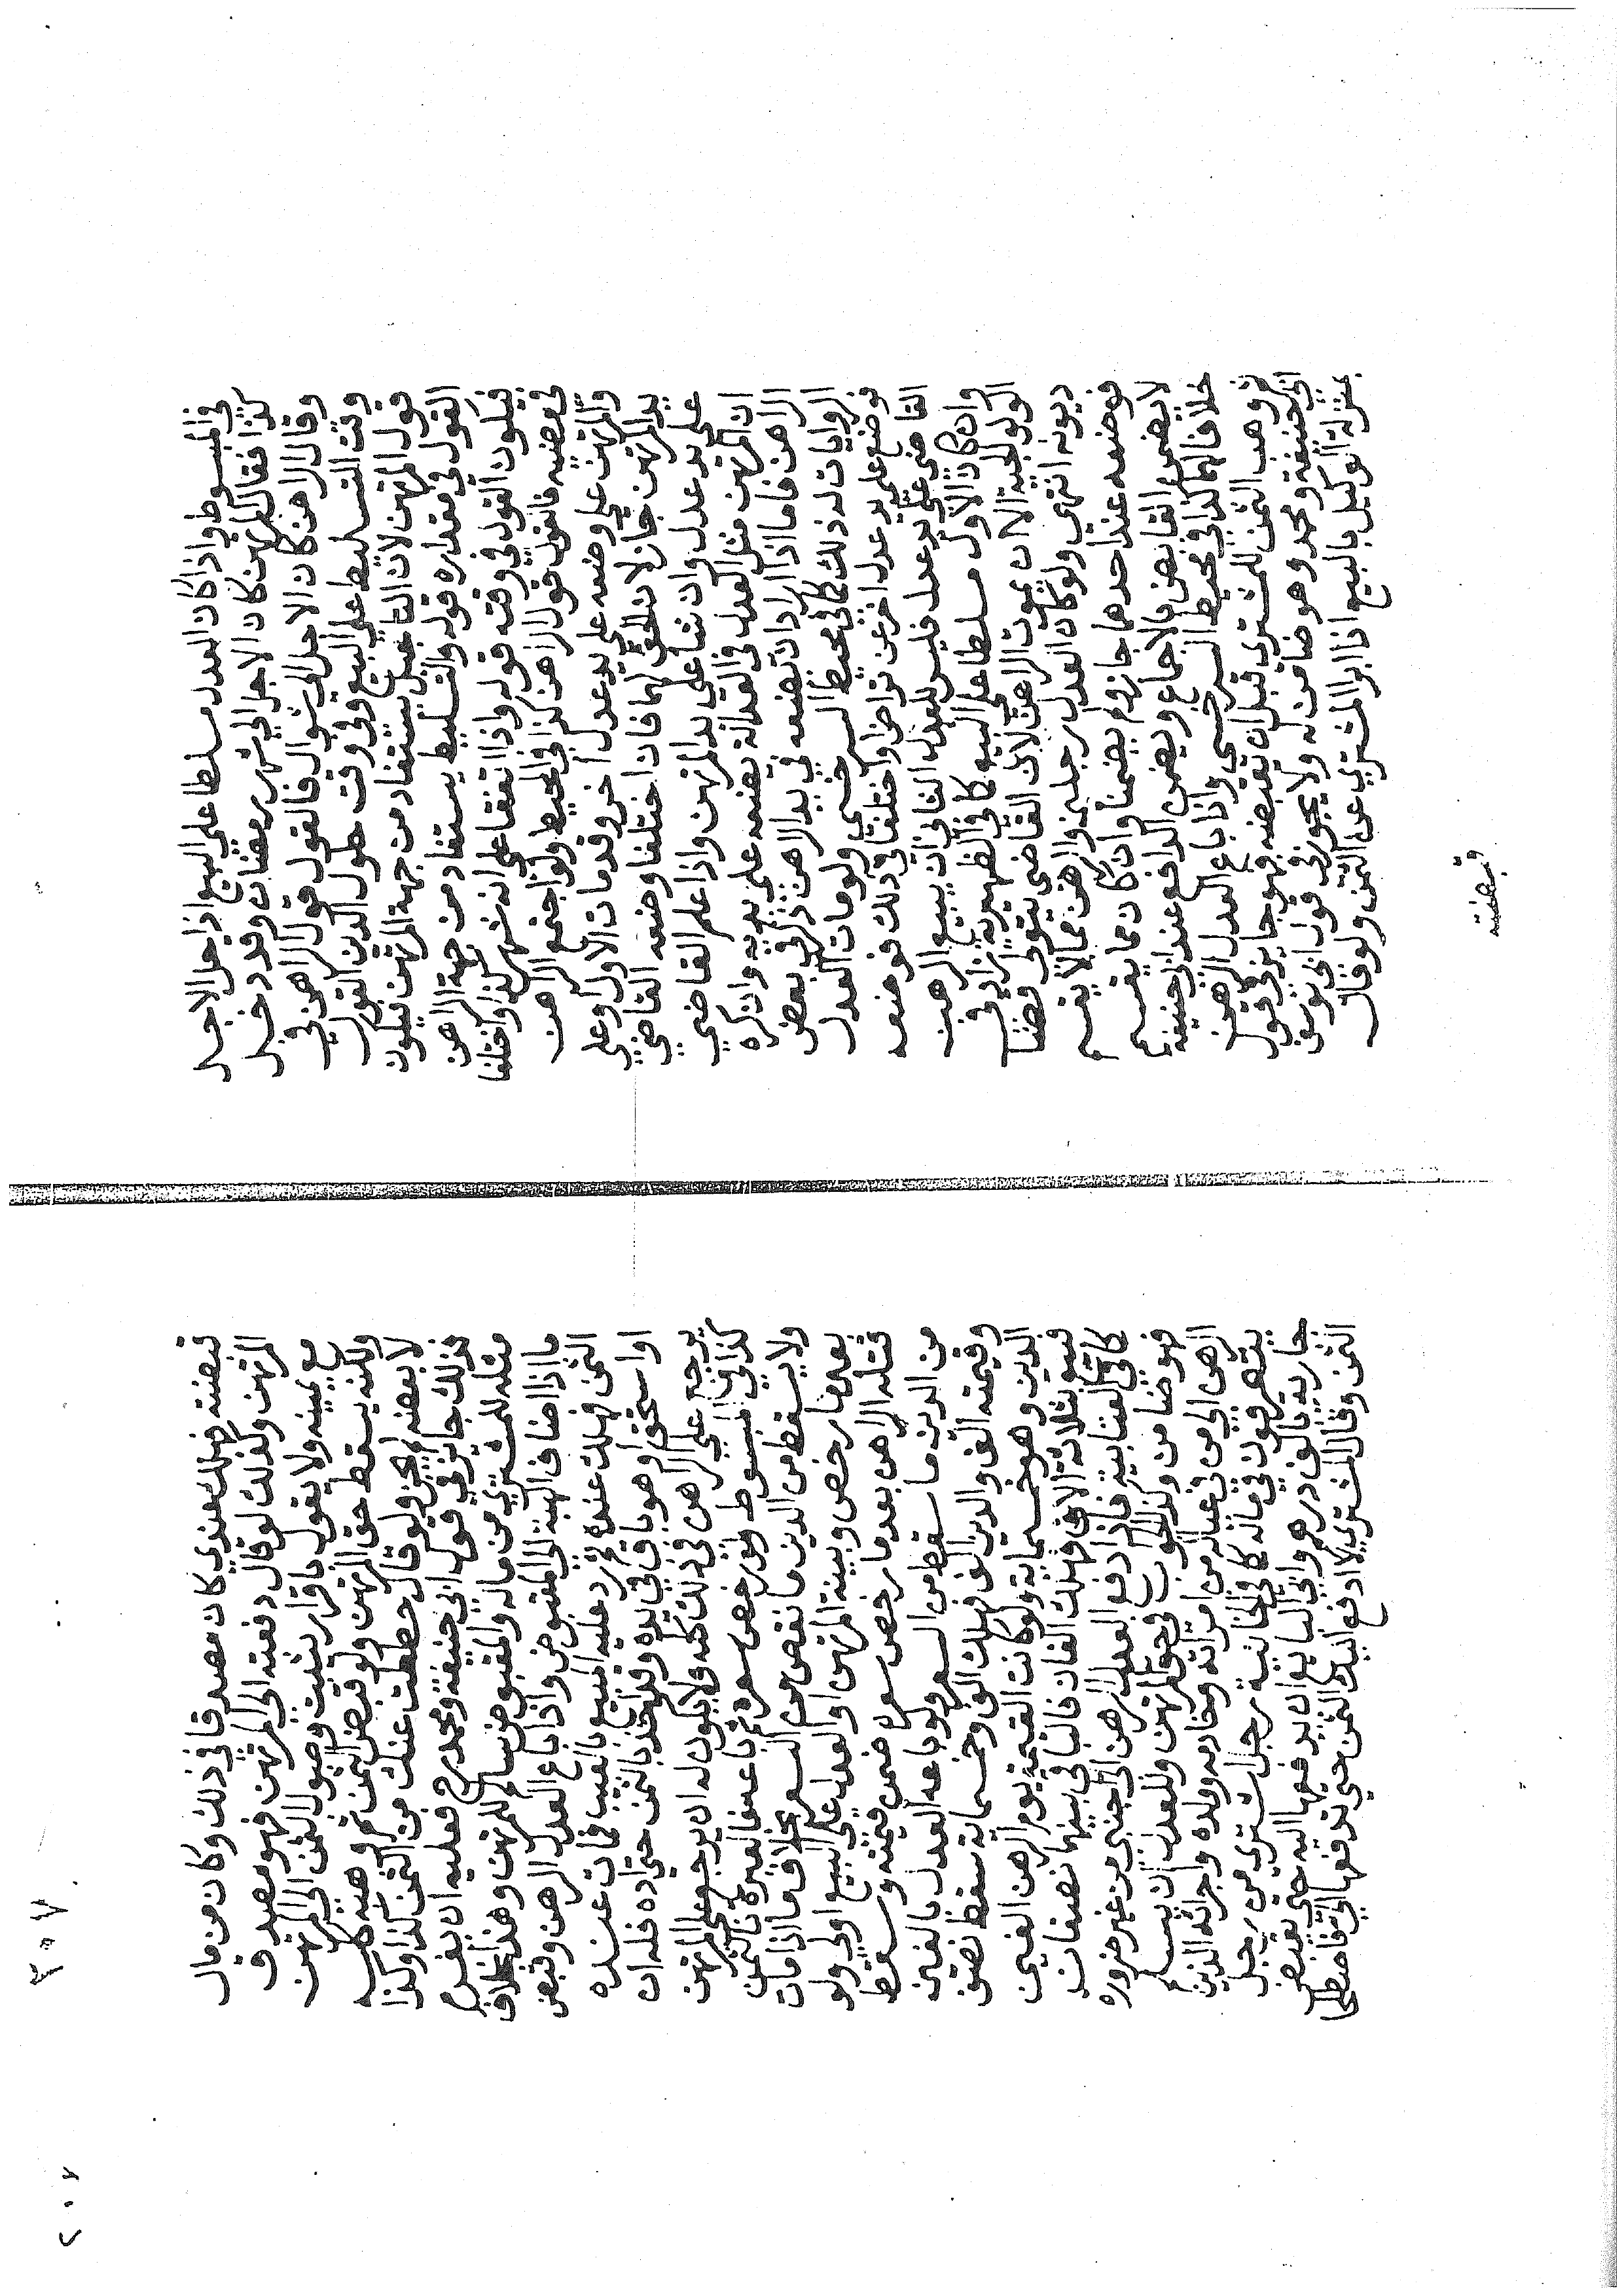 في المبسوط واذا كان العدل مسلطا على البيع اذا حل الاجل
كذا فقال المرتهن كان الاجل الى شهر رمضان وقد دخل
وقال الراهن كان الاجل الى شوال فالقول قول الراهن في
وقت التسليط على البيع وفي وقت حلول الدين القول
قول المرتهن لان التاجيل يستفاد من جهة المرتهن فيكون
القول في مقداره قوله والتسليط يستفاد من جهة الراهن
فيكون القول في وقته قوله واذا اتفقا على انه شهر كذا واختلفا
في مضيه فالقول قول الراهن كذا في المحيط ولو اجتمع الراهن
والمرتهن على وضعه على يد عدل اخر وقد مات الاول او على
يد المرتهن جاز لان الحق لهما فان اختلفا وضعه القاضي
على يد عدل وان شا على يد المرتهن واذا علم القاضي
ان المرتهن مثل العدل في العدالة يضعه على يديه وان كره
الراهن فاما اذا اراد ان يضعه في يد الراهن ذكر في بعض
الروايات له ذلك كما في محيط السرخسي ولو مات العدل
فوضع على يد عدل اخر عن تراض او اختلفا في ذلك فوضعه
القاضي على يد عدل فليس للعدل الثاني ان يبيع الرهن
وان كان الاول مسلطا على البيع كما في الظهيرية زاد في
الولوالجية الا ان يموت الراهن لان القاضي يتولى قضا
ديونه انتهى ولو كان العدل رجلين والرهن مما لا يقسم
فوضعه عند احدهما جاز ولم يضمنا وان كان مما يقسم
لا يضمن القابض بالاجماع ويضمن الدافع عند ابي حنيفة
خلافا لهما كذا في محيط السرخسي واذا باع العدل الرهن
ثم وهب الثمن للمشتري قبل ان يقبضه فهو جايز في قول
ابي حنيفة ومحمد وهو ضامن له ولا يجوز في قول ابي يوسف
بمنزلة الوكيل بالبيع اذا ابرا المشتري عن الثمن ولو قال
قبضته
قبضته فهلك عندي كان مصدقا في ذلك وكان من مال
المرتهن وكذلك لو قال دفعته الى المرتهن فهو مصدق
مع يمينه ولا يقول باقرار يثبت وصول الثمن الى المرتهن
ولكنه يسقط حق المرتهن ولو قبض الثمن ثم وهبه كله
لا بعضه لم يجز ولو قال حططت عنك من الثمن كذا وكذا
فذلك جايز في قول ابي حنيفة ومحمد فعليه ان يغرم
مثله للمشتري من ماله والمقبوض سالم للمرتهن وهذا بخلاف
ما اذا اضاف الهبة الى المقبوض واذا باع العدل الرهن وقبض
الثمن فهلك عنده ثم رد عليه المبيع بالعيب فمات عنده
او استحق او هو باق في يده وقد اخذ بالثمن حتى اده فله ان
يرجع على الراهن في ذلك كله ولا يكون له ان يرجع على المرتهن
كذا في المبسوط ولو رخص سعره ثم باعه فالعبرة بالثمن
ولا يسقط من الدين ما نقص من السعر بخلاف ما اذا مات
بعد ما رخص وبينة المرتهن او العدل على البيع اولى ولو
قتله الراهن بعد ما رخص سعره ضمن قيمته وسقط
من الدين ما سقط من السعر ولو باعه العدل بالفين
وقيمته الف والدين الف فهلك الف وخمسماية سقط نصف
الدين وهو خمسماية ولو كانت القيمة يوم الرهن الفين
فبيع بثلاثة الاف فهلك الفان فالباقي بينهما نصفان
كما في العتابية فاذا دفع العدل الرهن الى اجنبي من غير ضرورة
فهو ضامن وللعدل ان يسلم
الرهن الى من في عياله من امراته وخادمه وولده واجرائه الذين
يتصرفون في ماله كما في الخانية رجل اشترى من رجل
جارية بالف درهم وابى البايع ان يدفعها اليه حتى يقبض
الثمن وقال المشتري لا ادفع اليك الثمن حتى تدفعها الي
٢٠٧
٢٠٧